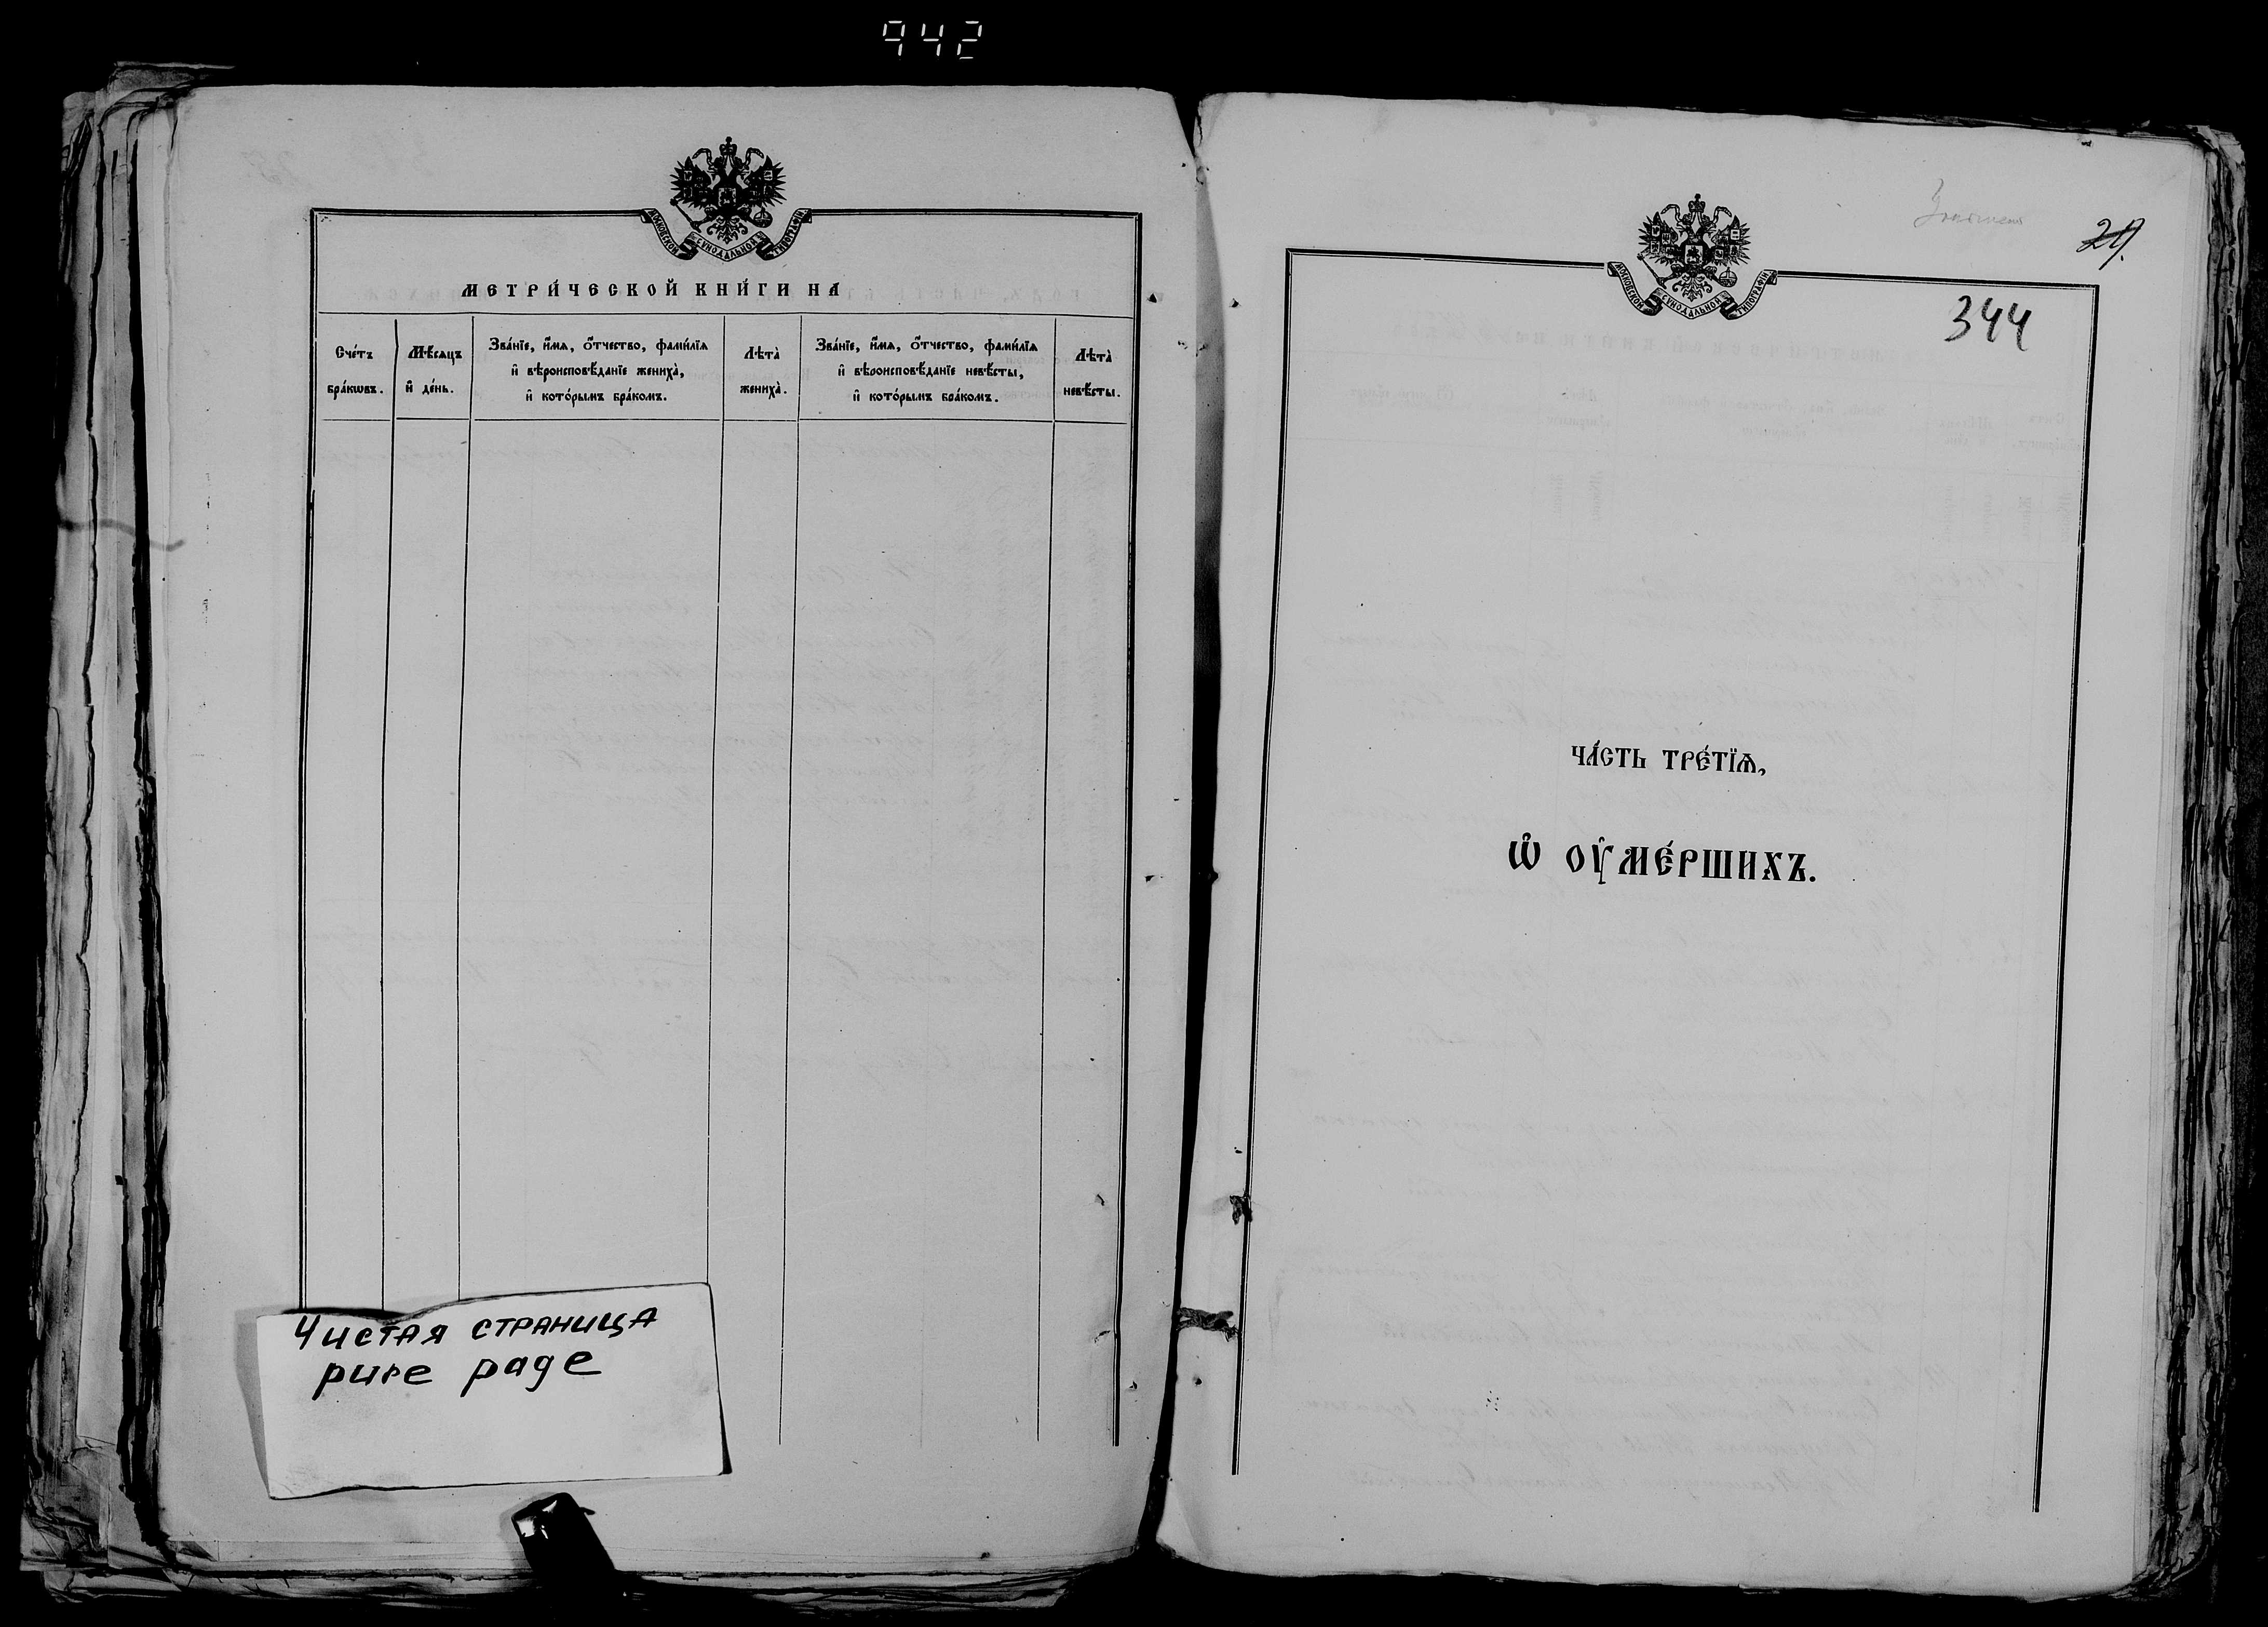 942
МОСКОВСКОЙ СѴНОДАЛЬНОЙ ТИПОГРАФІИ
МЕТРИ́ЧЕСКОЙ КНИ́ГИ НА
Сче́тъ
бра́кѡвъ.
Мѣ́сяцъ
и҆ де́нь.
Зва́нїе, и҆́мѧ, ѻ҆́тчество, фами́лїѧ
и҆ вѣроисповѣ́данїе жениха̀,
и҆ кото́рымъ бра́комъ.
Лѣта̀
жениха̀.
Зва́нїе, и҆́мѧ, ѻ҆́тчество, фами́лїѧ
и҆ вѣроисповѣ́данїе невѣ́сты,
и҆ кото́рымъ бра́комъ.
Лѣта̀
невѣ́сты.
Чистая страница
pure page
МОСКОВСКОЙ СѴНОДАЛЬНОЙ ТИПОГРАФІИ
344
ЧА́СТЬ ТРЕ́ТЇѦ,
Ѡ҆ ОУ҆МЕ́РШИХЪ.